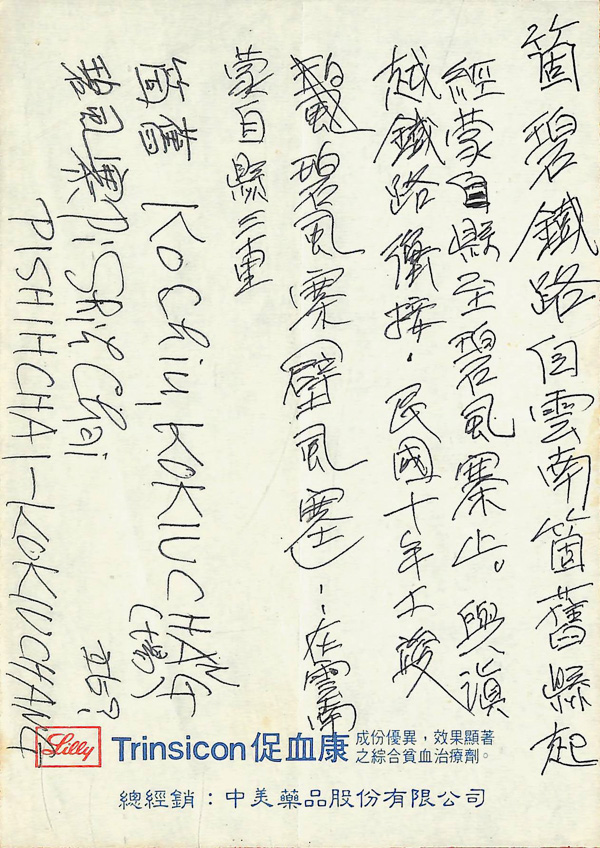 箇碧鐵路自雲南箇舊縣起
經蒙自縣至碧風寨止。與滇
越鐵路銜接.民國十年土竣
碧風寨壁風塞:在雲南
蒙自縣三東
箇舊 KOChiu, KOKIUCHANG(場)
碧風寨Pi Shih Chai
PISHIHCHAI-KOKIUCHANG
Lilly
Trinsicon 促血康 成份優異,效果顯著
之綜合貧血治療劑。
總經銷:中美藥品股份有限公司